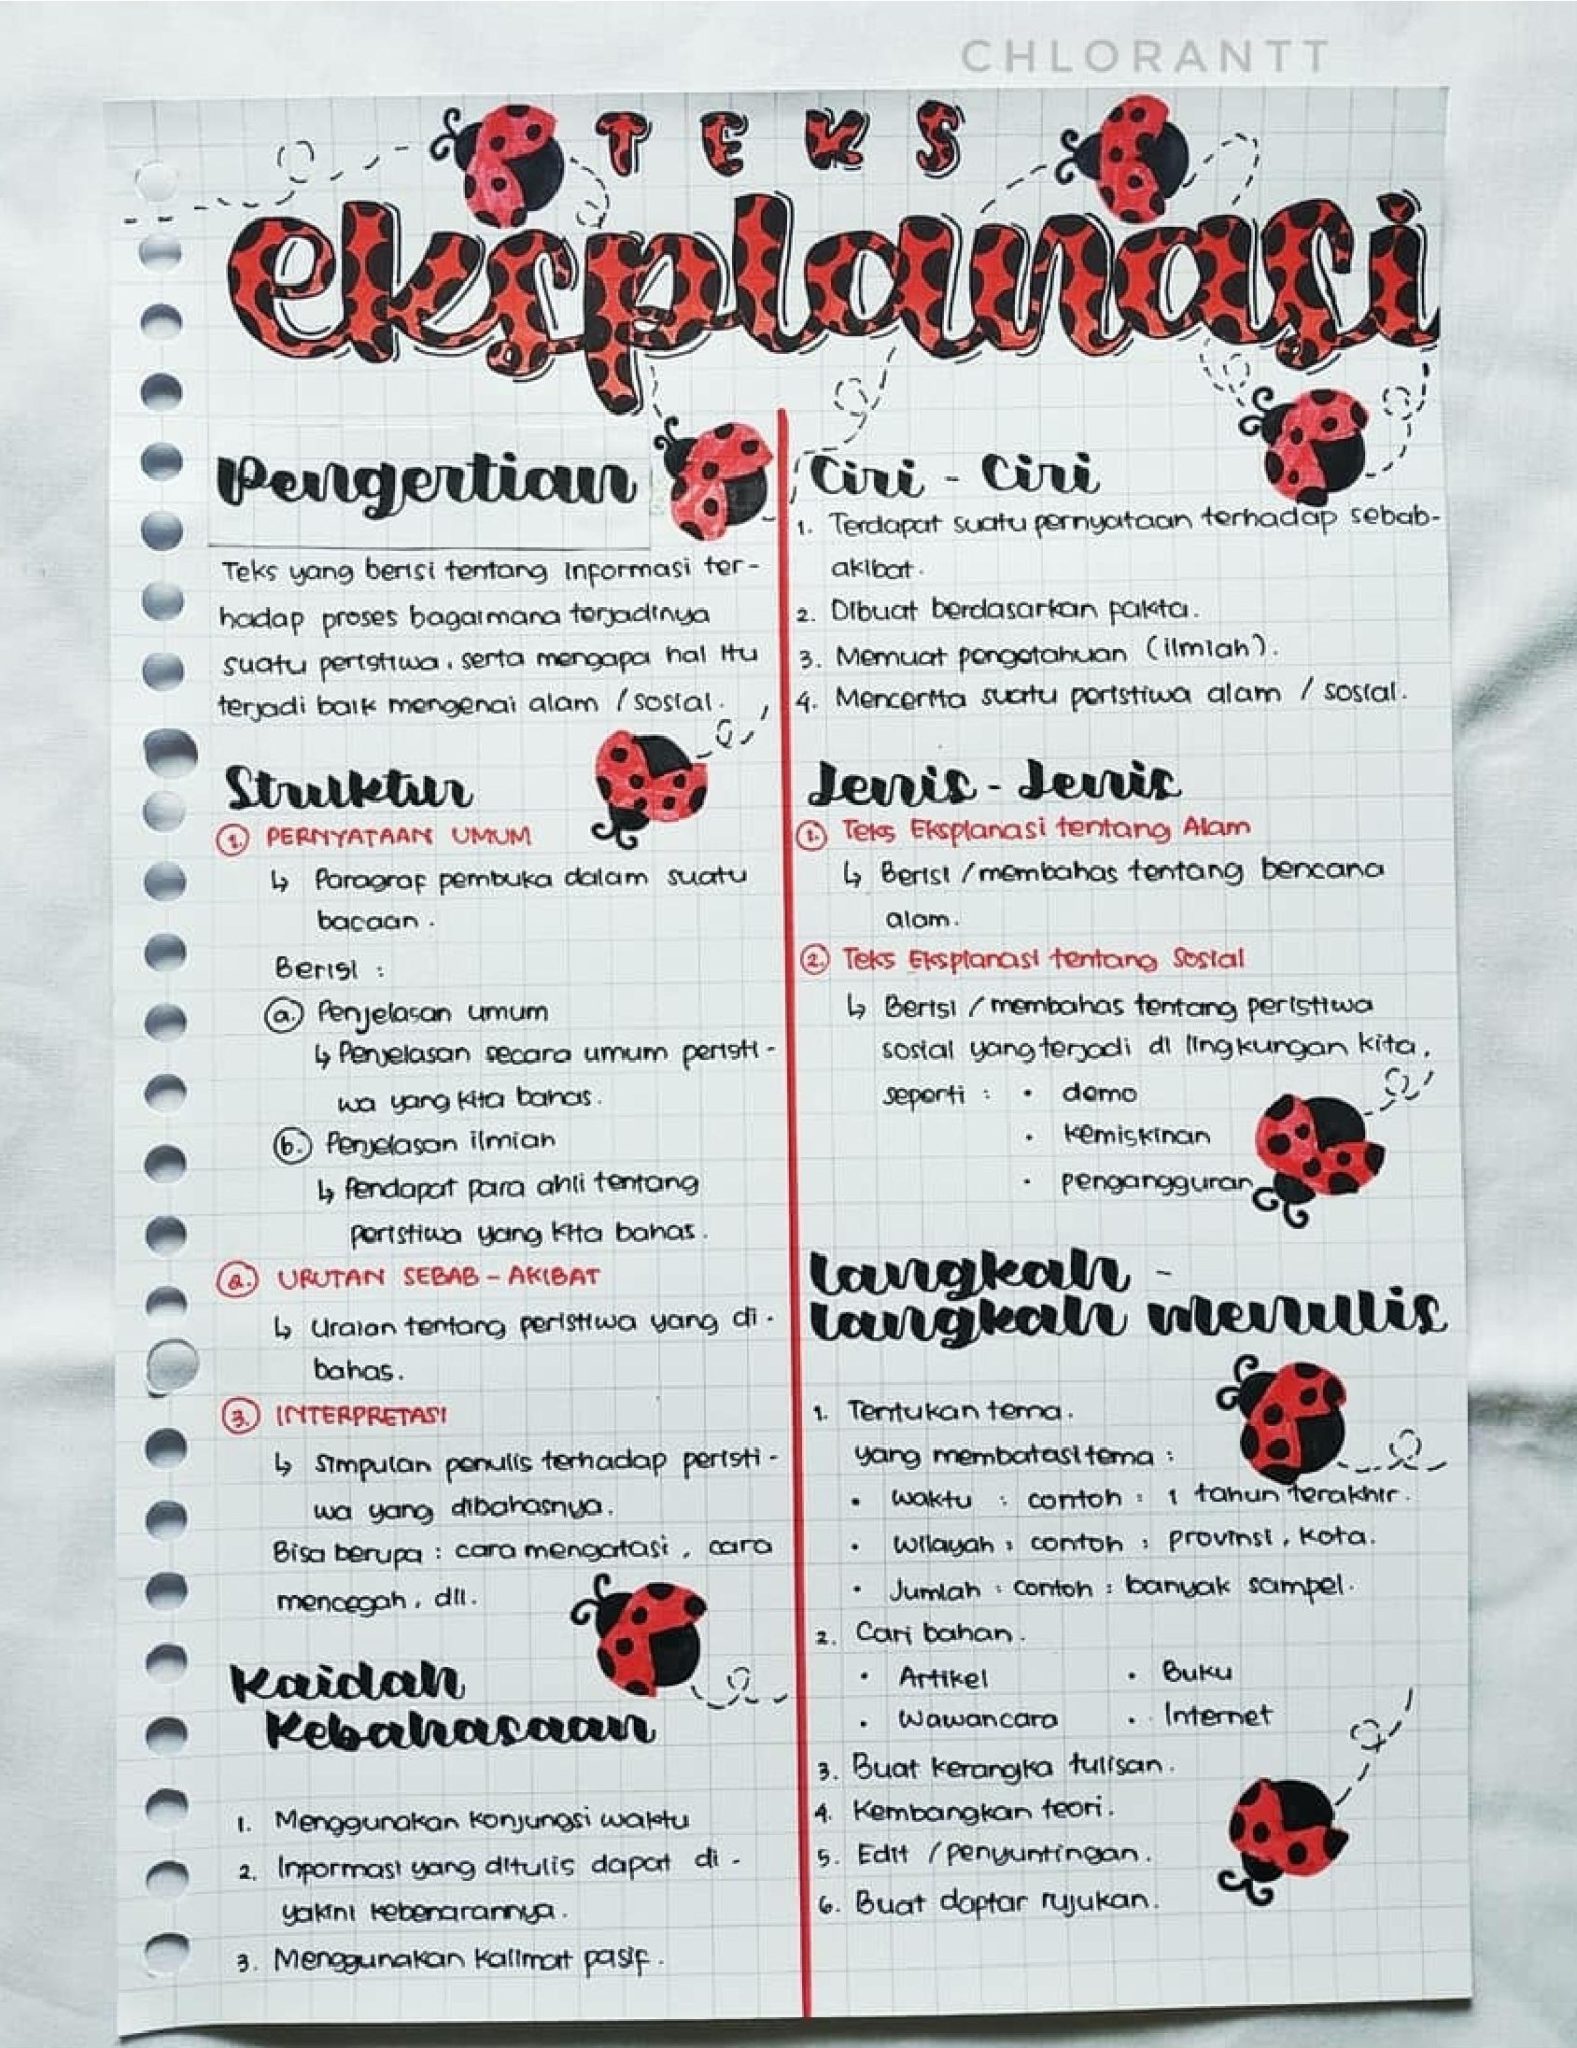 CHLORANTT
TEKS
eksplanasi
Pengertian
Teks yang berisi tentang informasi ter-
hadap proses bagaimana terjadinya
suatu peristiwa, serta mengapa hal itu
terjadi baik mengenai alam / sosial.
Struktur
1. PERNYATAAN UMUM
↳ Paragraf pembuka dalam suatu
bacaan.
Berisi :
a. Penjelasan umum
↳ Penjelasan secara umum peristi-
wa yang kita bahas.
b. Penjelasan ilmiah
↳ Pendapat para ahli tentang
peristiwa yang kita bahas.
2. URUTAN SEBAB - AKIBAT
↳ Uraian tentang peristiwa yang di-
bahas.
3. INTERPRETASI
↳ Simpulan penulis terhadap peristi-
wa yang dibahasnya.
Bisa berupa : cara mengatasi, cara
mencegah, dll.
Kaidah
Kebahasaan
1. Menggunakan konjungsi waktu
2. Informasi yang ditulis dapat di-
yakini kebenarannya.
3. Menggunakan kalimat pasif.
Ciri - Ciri
1. Terdapat suatu pernyataan terhadap sebab-
akibat.
2. Dibuat berdasarkan fakta.
3. Memuat pengetahuan (ilmiah).
4. Mencerita suatu peristiwa alam / sosial.
Jenis - Jenis
1. Teks Eksplanasi tentang Alam
↳ Berisi / membahas tentang bencana
alam.
2. Teks Eksplanasi tentang Sosial
↳ Berisi / membahas tentang peristiwa
sosial yang terjadi di lingkungan kita,
seperti : • demo
• kemiskinan
• pengangguran
Langkah -
langkah menulis
1. Tentukan tema.
yang membatasi tema :
• waktu : contoh : 1 tahun terakhir.
• wilayah : contoh : provinsi, kota.
• Jumlah : contoh : banyak sampel.
2. Cari bahan.
• Artikel • Buku
• Wawancara • Internet
3. Buat kerangka tulisan.
4. Kembangkan teori.
5. Edit / penyuntingan.
6. Buat daftar rujukan.